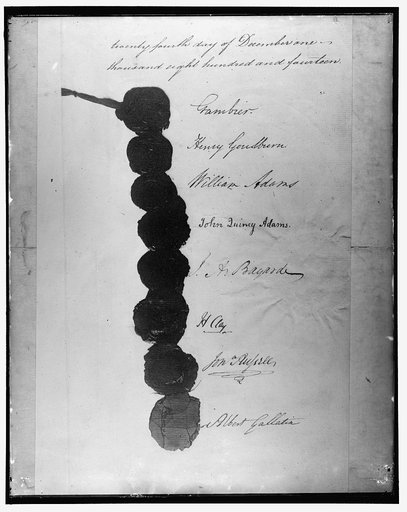 twenty fourth day of December one
thousand eight hundred and fourteen.
Gambier.
Henry Goulburn
William Adams
John Quincy Adams.
J. A. Bayard
H. Clay
Jon.ª Russell
Albert Gallatin